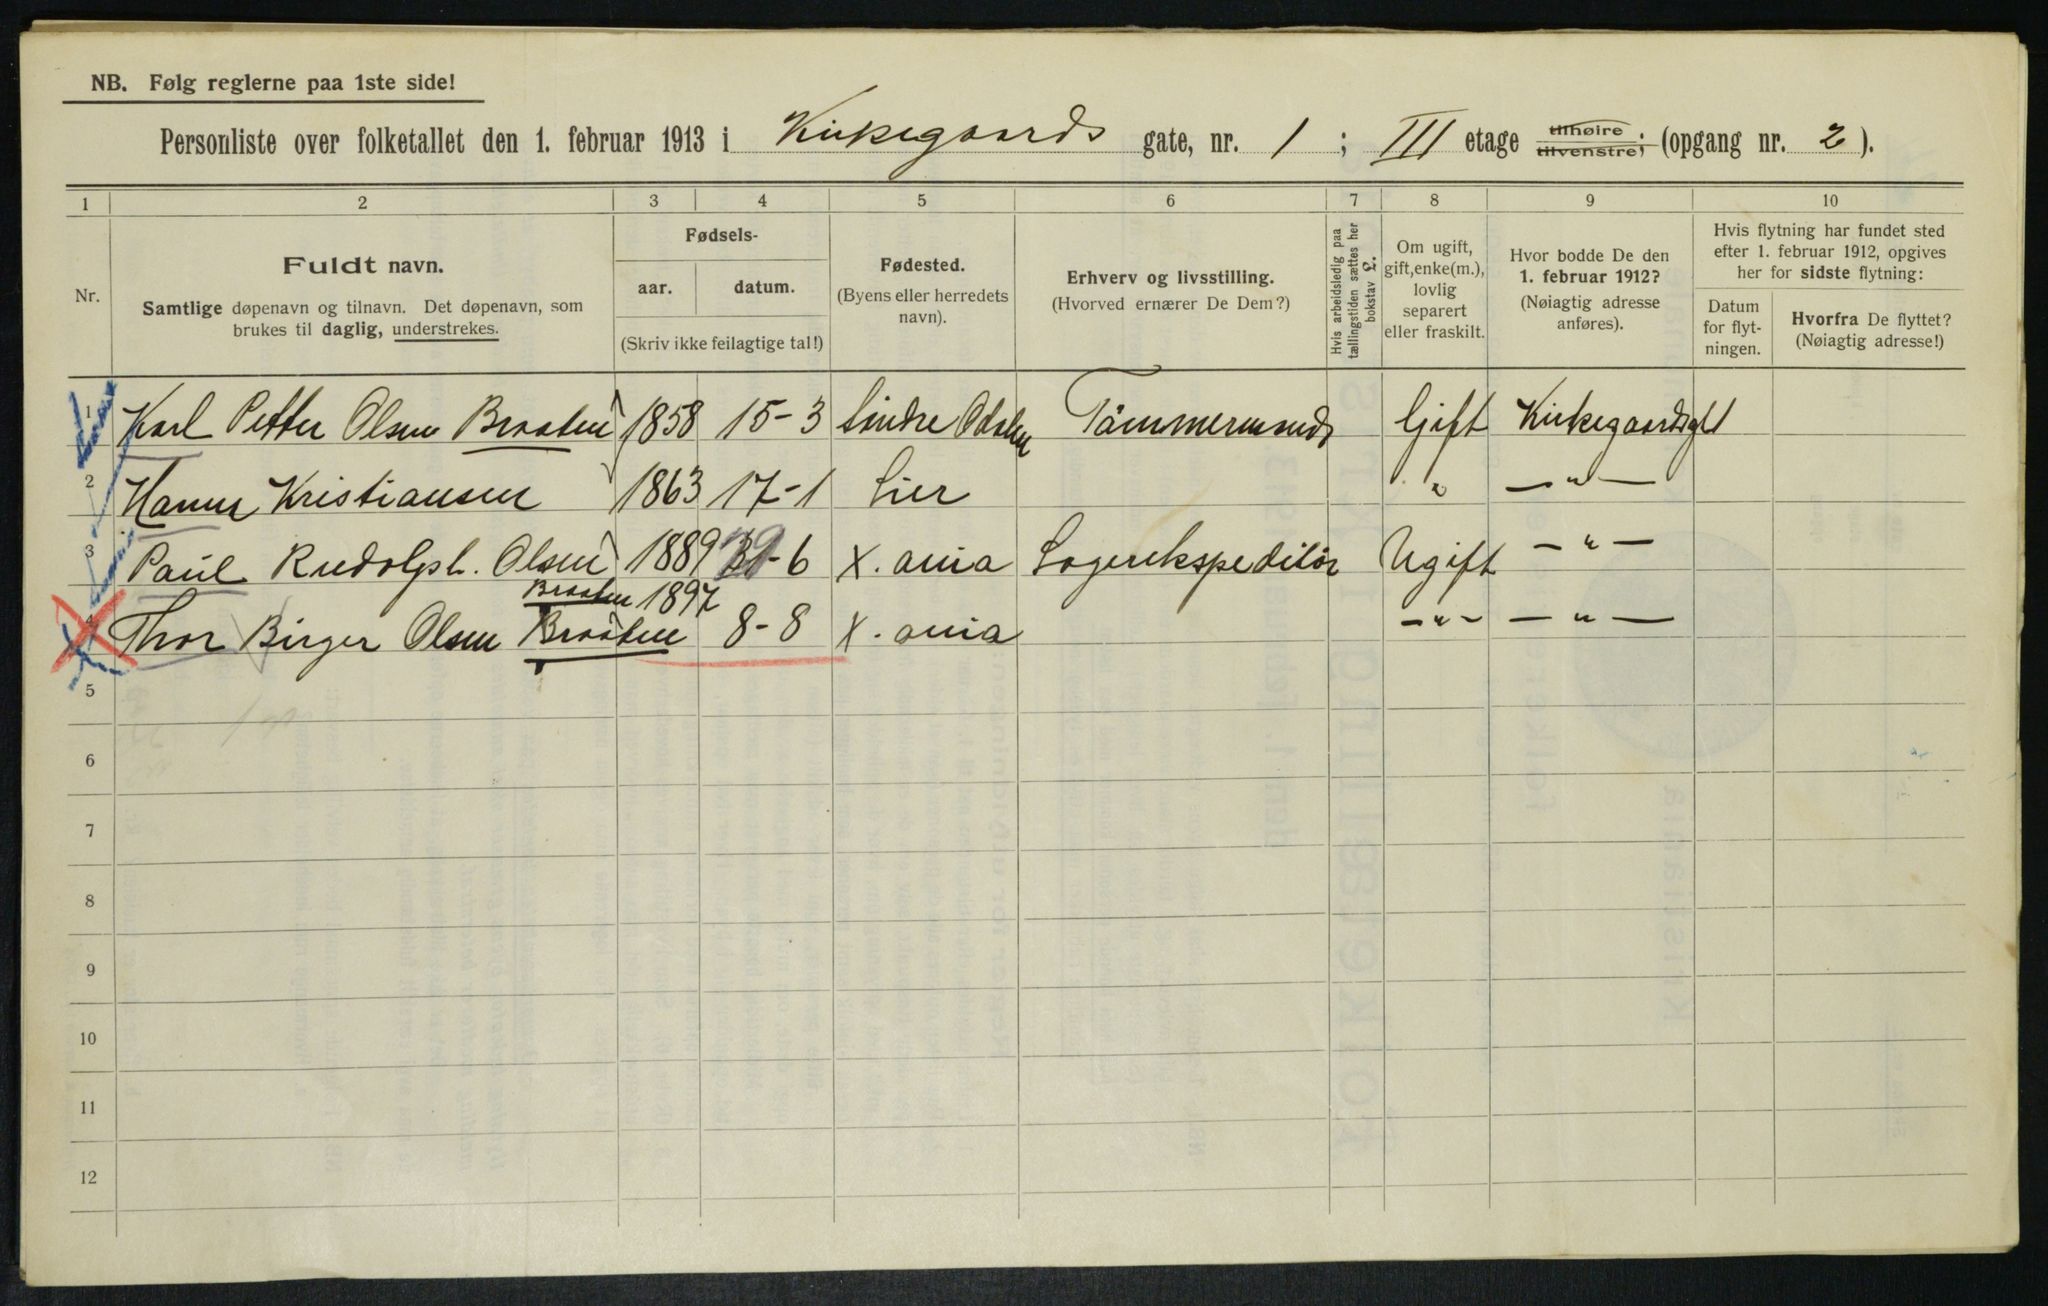 NB. Følg reglerne paa 1ste side!
Personliste over folketallet den 1. februar 1913 i Kirkegaards gate, nr. 1 ; III etage tilhøire tilvenstre; (opgang nr. 2 ).
1 2 3 4 5 6 7 8 9 10
Nr.
Fuldt navn.
Samtlige døpenavn og tilnavn. Det døpenavn, som
brukes til daglig, understrekes.
Fødsels-
aar. datum.
(Skriv ikke feilagtige tal!)
Fødested.
(Byens eller herredets
navn).
Erhverv og livsstilling.
(Hvorved ernærer De Dem?)
Hvis arbeidsledig paa
tællingstiden sættes her
bokstav £.
Om ugift,
gift, enke(m.),
lovlig
separert
eller fraskilt.
Hvor bodde De den
1. februar 1912?
(Nøiagtig adresse
anføres).
Hvis flytning har fundet sted
efter 1. februar 1912, opgives
her for sidste flytning:
Datum
for flyt-
ningen.
Hvorfra De flyttet?
(Nøiagtig adresse!)
1 Karl Petter Olsen Braaten 1858 15-3 Søndre Odalen Tömmermand Gift Kirkegaardsgt 1
2 Hanna Kristiansen 1863 17-1 Lier " — " —
3 Paul Rudolph. Olsen Braaten 1889 -6 X.ania Lagerekspeditör Ugift — " —
4 Thor Birger Olsen Braaten 1897 8-8 X.ania — " — — " —
5
6
7
8
9
10
11
12